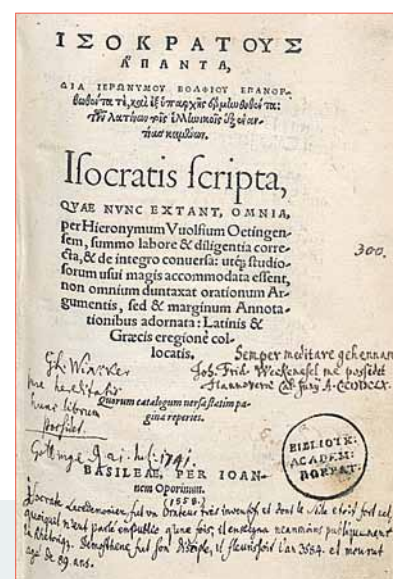 ΙΣΟΚΡΑΤΟΥΣ
ΑΠΑΝΤΑ,
ΔΙΑ ΙΕΡΩΝΥΜΟΥ ΒΟΛΦΙΟΥ ΕΠΑΝΟΡ-
Isocratis scripta,
QVAE NVNC EXTANT, OMNIA,
per Hieronymum Vuolfium Oetingen-
sem, summo labore & diligentia corre-
cta, & de integro conuersa: utq; studio-
sorum usui magis accommodata essent,
non omnium duntaxat orationum Ar-
gumentis, sed & marginum Annota-
tionibus adornata: Latinis &
Græcis eregione col-
locatis,
300.
Semper meditare gehennam
me hereditatis
hunc librum
possidet.
Quorum catalogum uersa statim pa-
gina reperies.
1741
BASILEAE, PER IOAN-
nem Oporinum.
(1558.)
BIBLIOTH:
ACADEM:
DORPAT:
Isocrate Lacedemonien, fut un Orateur très
quoiqu'il n'eut parlé en public q'une fois, il enseigna neanmoins publiquement
la Rhetoriq. Demosthene fut son disciple, il fleurissoit l'an 3584. et mourut
agé de 89 ans.